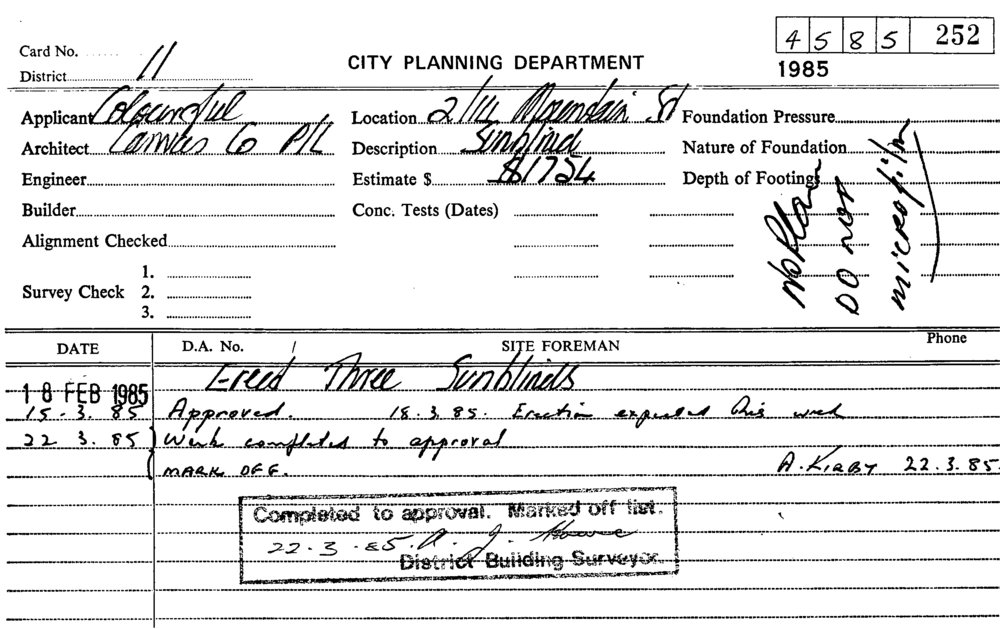 4 5 8 5 252
Card No. 11
CITY PLANNING DEPARTMENT
1985
District
Applicant Colourful
Location 2/14 Mountain St
Foundation Pressure
Architect Canvas Co P/L
Description Sunblind
Nature of Foundation
Engineer
Estimate $ $1754
Depth of Footings
Builder
Conc. Tests (Dates)
Alignment Checked
No Plan
DO NOT
microfilm
1.
Survey Check 2.
3.
DATE D.A. No. / SITE FOREMAN Phone
18 FEB 1985 Erect Three Sunblinds
15.3.85 Approved. 18.3.85. Erection expected this week
22 3.85 Work completed to approval
MARK OFF. A. KIRBY 22.3.85.
Completed to approval. Marked off list.
22.3.85. A. J. Howe
District Building Surveyor.